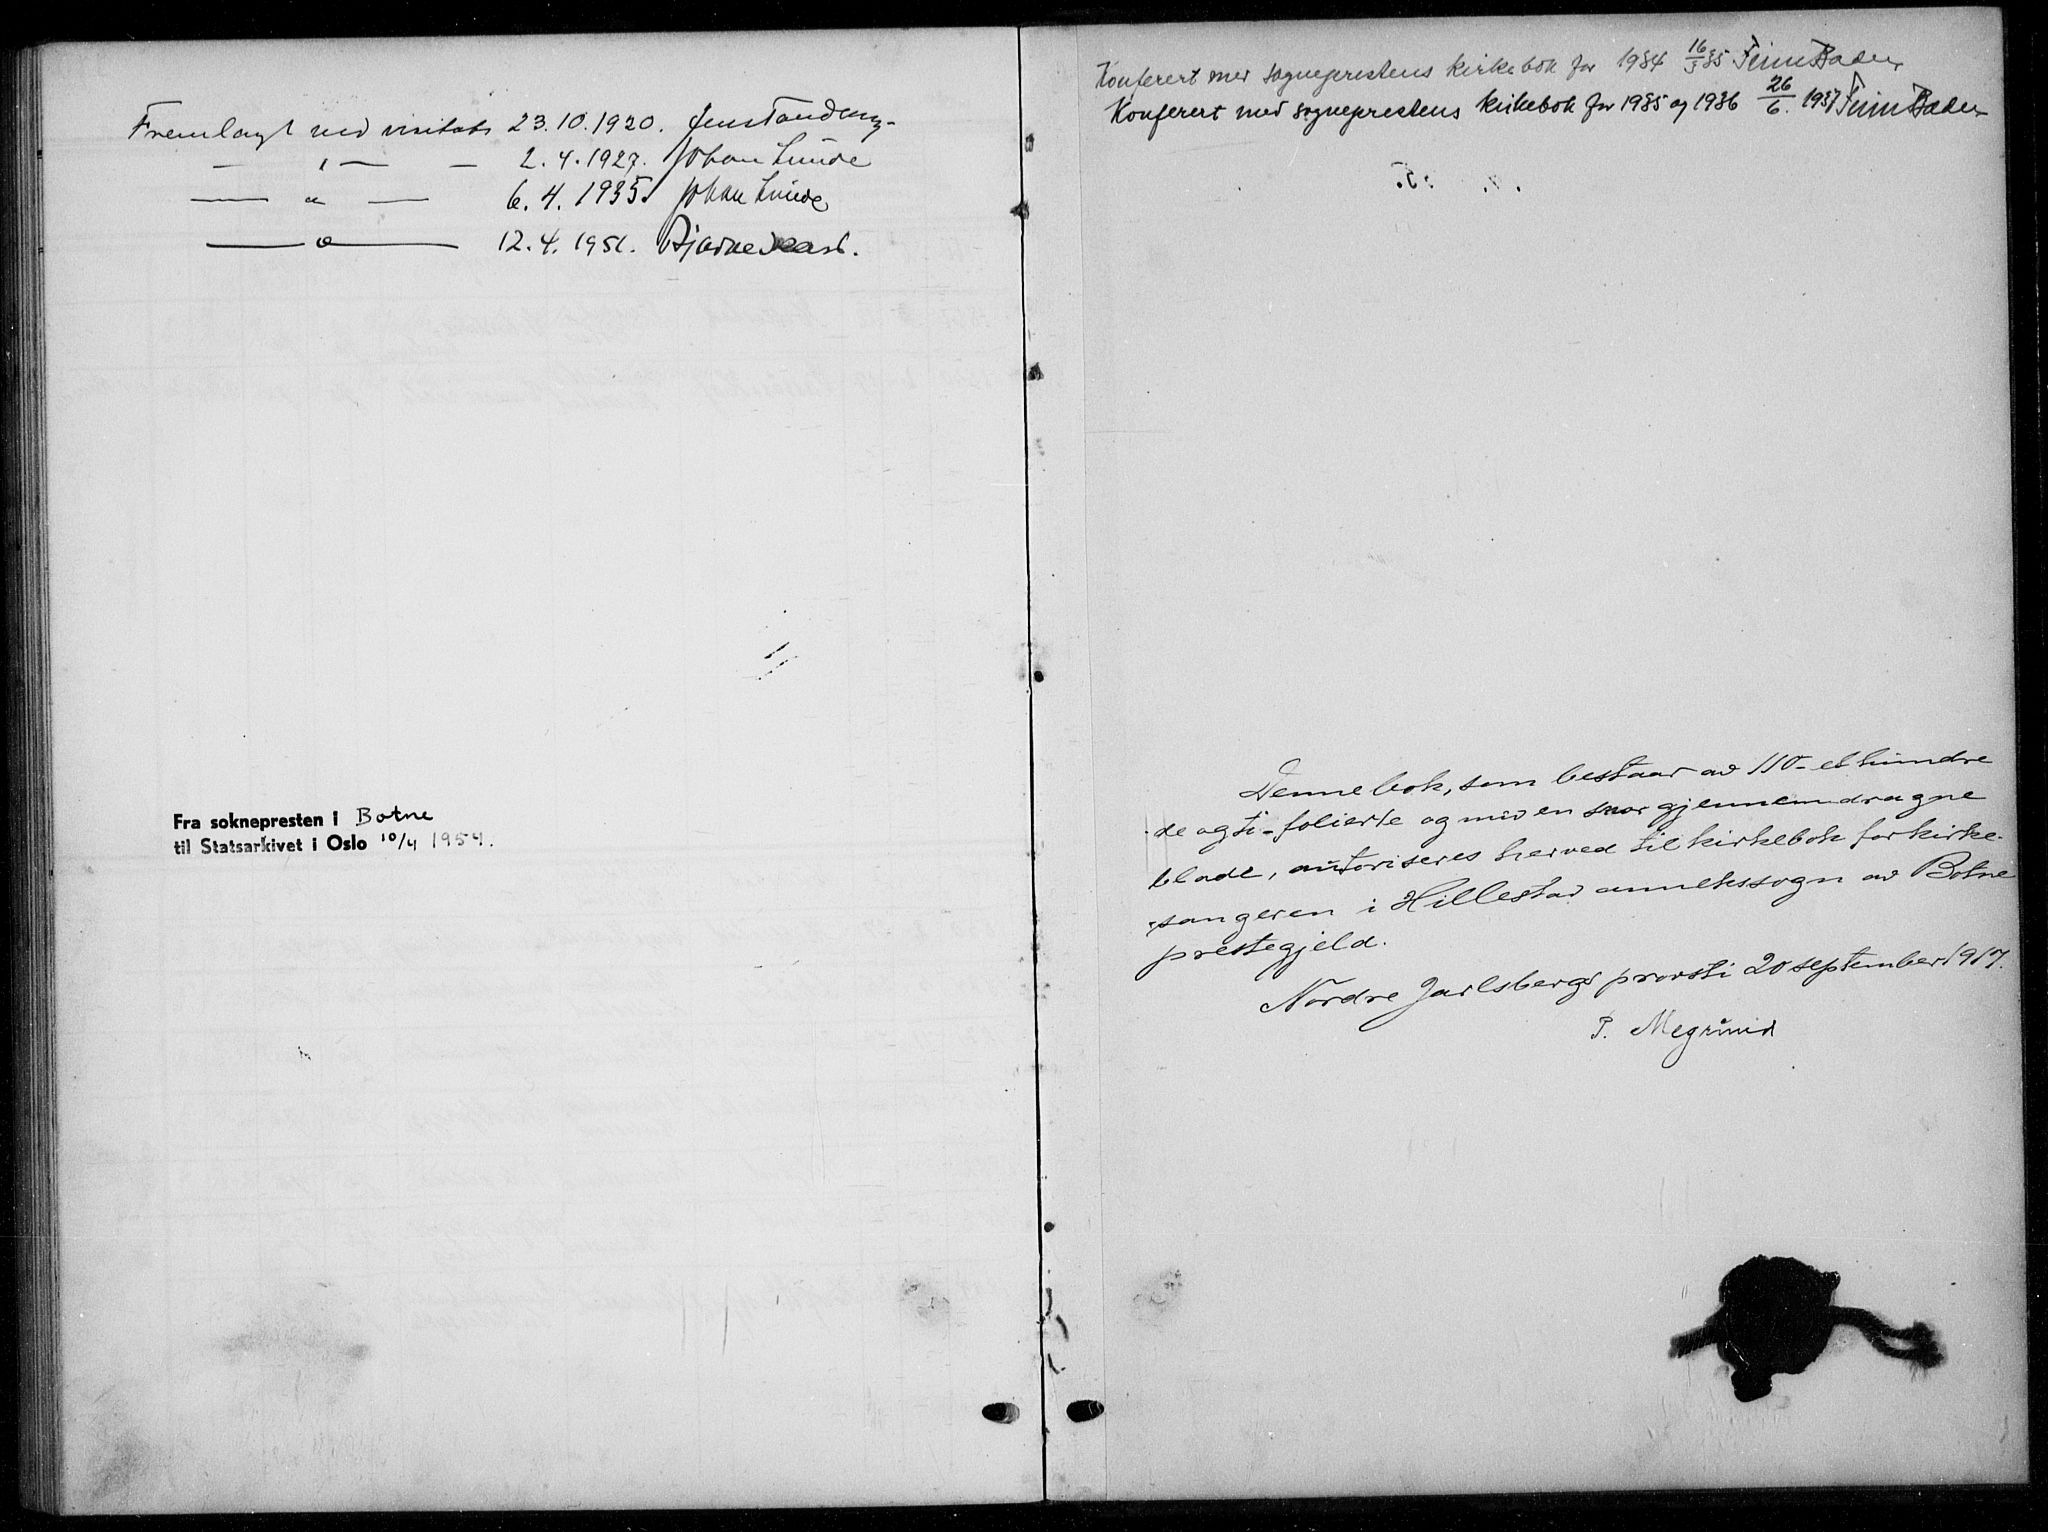 Fremlagt ved visitats 23.10.1920. Jens Tandberg.
— „ — — 2.4.1927. Johan Lunde
— „ — 6.4.1935. Johan Lunde
— „ — 12.4.1951. Bjarne
Fra soknepresten i Botne
til Statsarkivet i Oslo 10/4 1954.
Konferert med sogneprestens kirkebok for 1934 16/3 35 Finn Bade
Konferert med sogneprestens kirkebok for 1935 og 1936 26/6. 1937 Finn Bade
Denne bok, som bestaar av 110 - et hundre
de og ti - folierte og med en snor gjennemdragne
blade, autoriseres herved til kirkebok for kirke-
sangeren i Hillestad annekssogn av Botne
prestegjeld.
Nordre Jarlsbergs provsti 20 september 1917.
P. Megrund